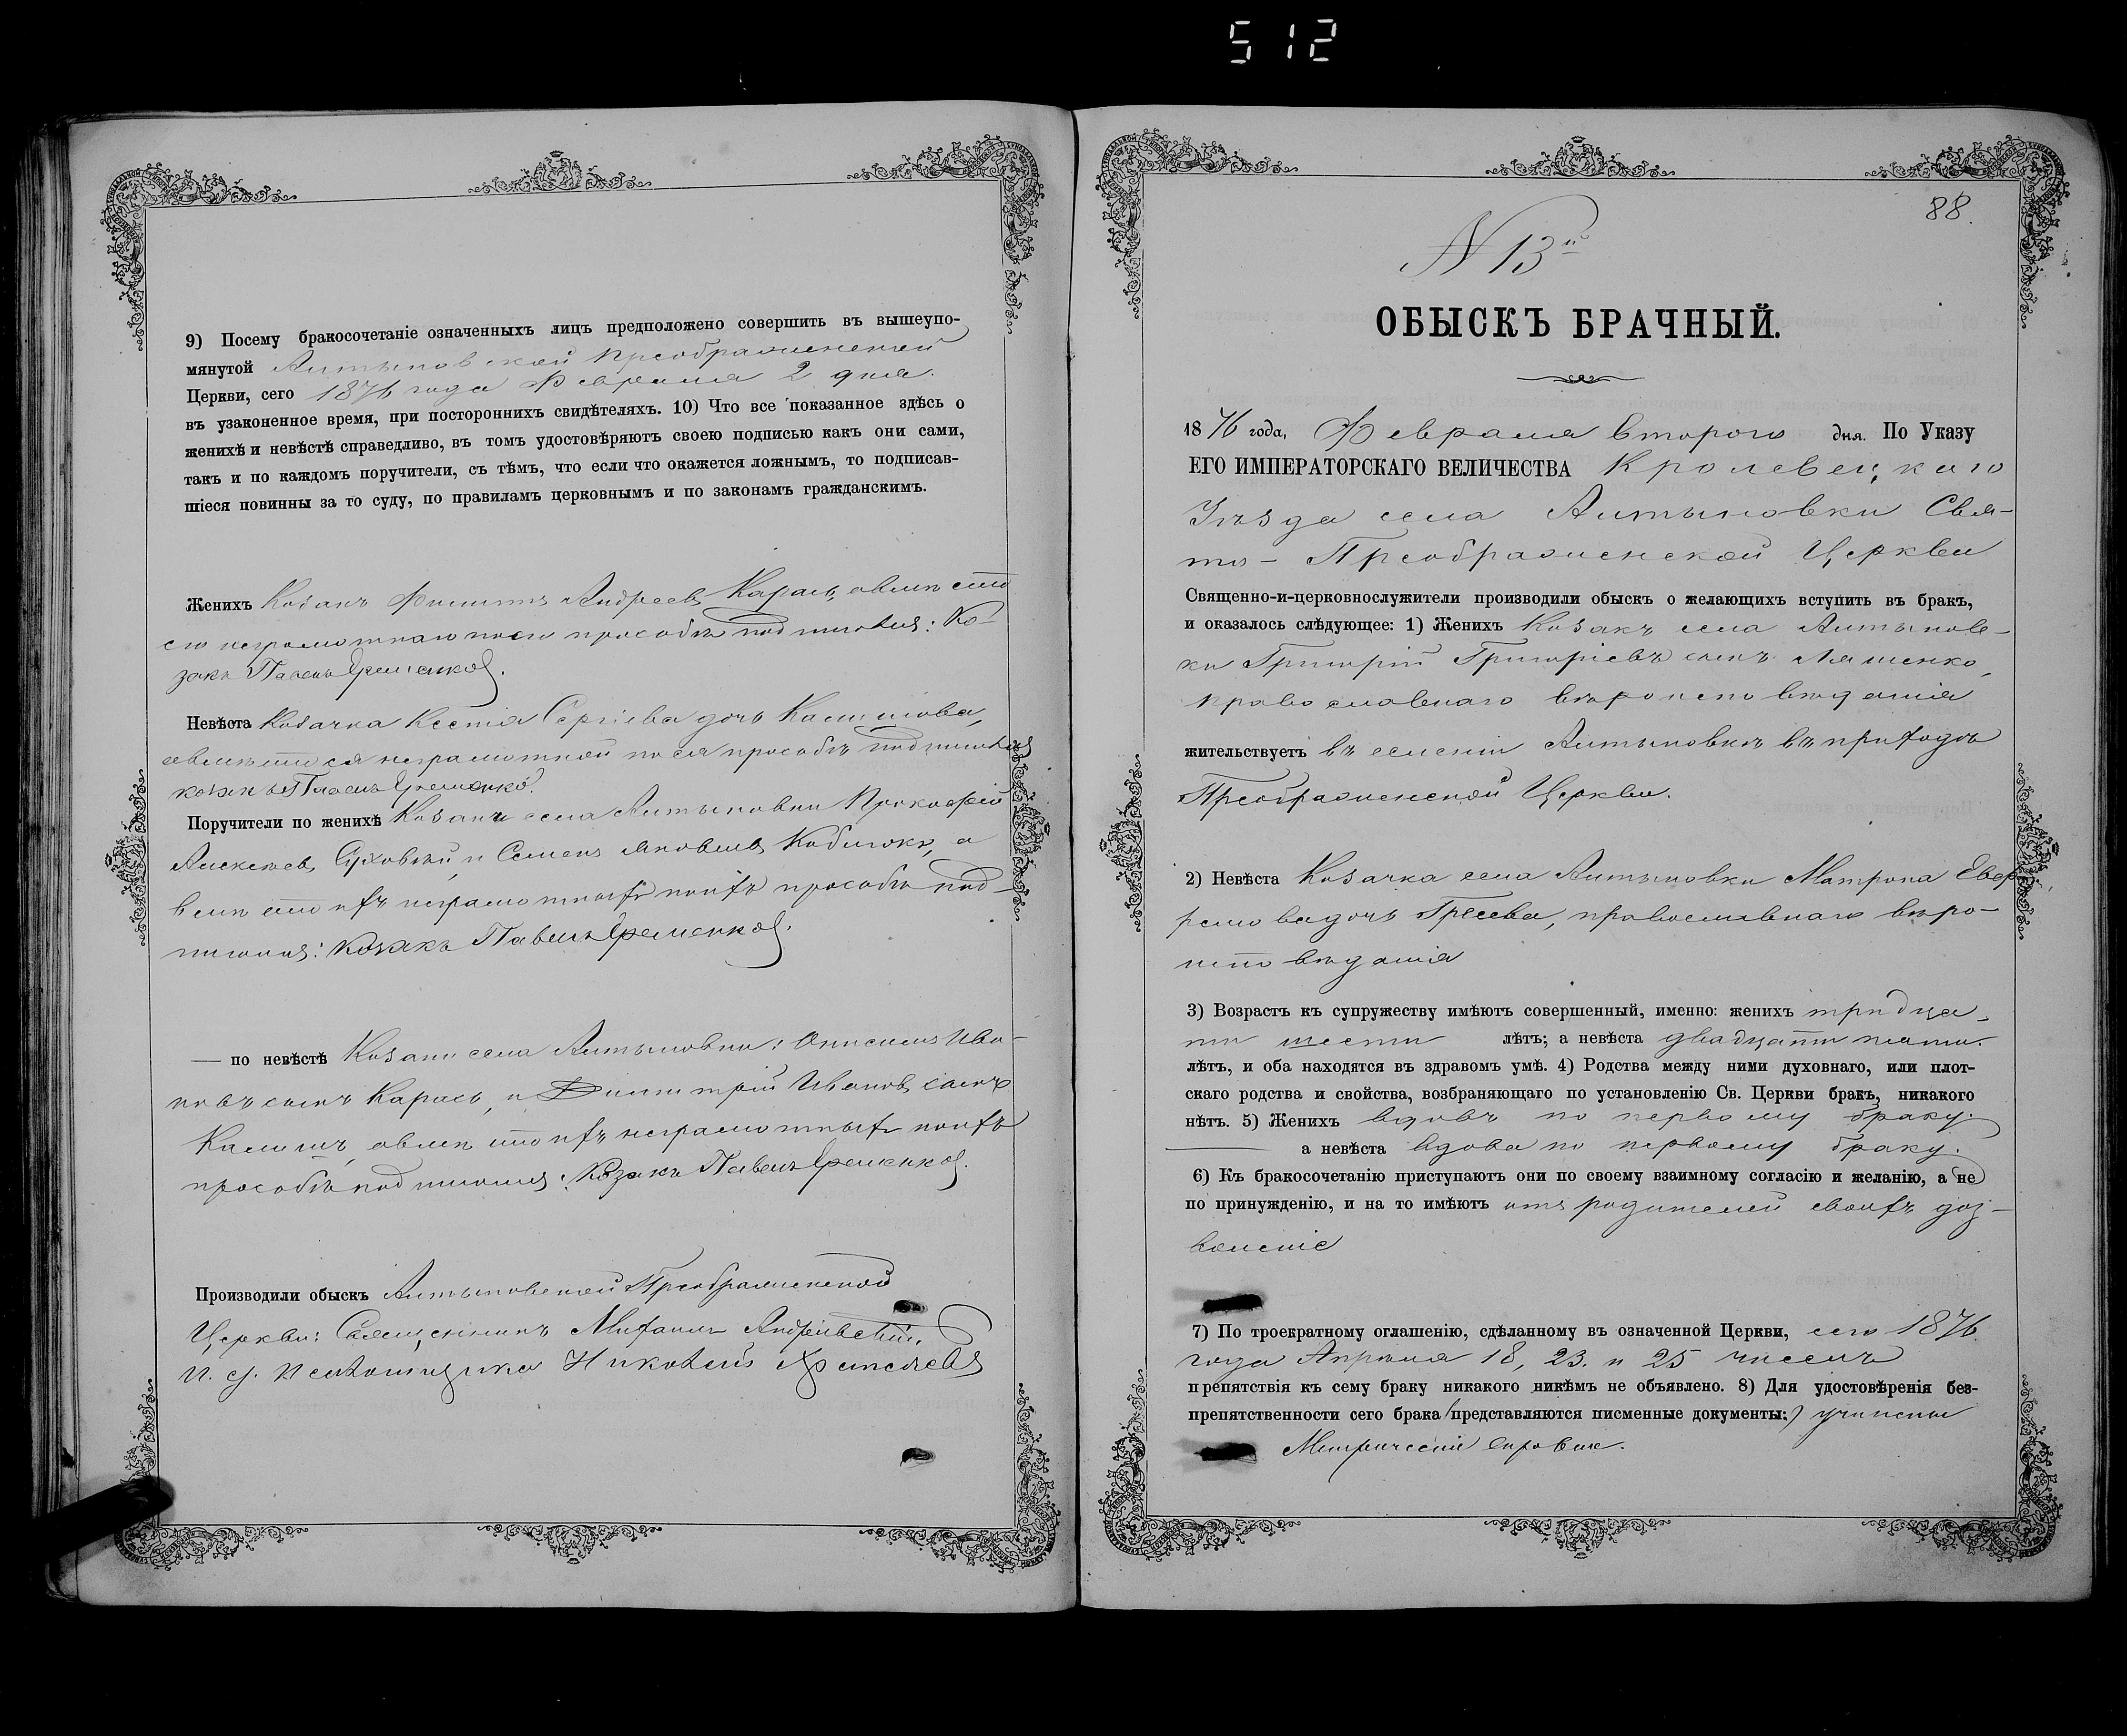 512
9) Посему бракосочетаніе означенныхъ лицъ предположено совершить въ вышеупо-
мянутой Алтыновской Преображенской
Церкви, сего 1876 года Февраля 2 дня.
въ узаконенное время, при постороннихъ свидѣтеляхъ. 10) Что все показанное здѣсь о
женихѣ и невѣстѣ справедливо, въ томъ удостовѣряютъ своею подписью какъ они сами,
такъ и по каждомъ поручители, съ тѣмъ, что если что окажется ложнымъ, то подписав-
шіеся повинны за то суду, по правиламъ церковнымъ и по законамъ гражданскимъ.
Женихъ Козакъ Филиппъ Андреевъ Карась, а вмѣсто
его неграмотнаго по его прозьбѣ подписался: Ко-
закъ Павелъ Еременко.
Невѣста Козачка Ксенія Сергіева дочь
а вмѣсто ея неграмотной по ея прозьбѣ подписался
козакъ Павелъ Еременко.
Поручители по женихѣ Козаки села Алтыновки Прокофій
Алексѣевъ и Семенъ Яковлевъ а
вмѣсто ихъ неграмотныхъ по ихъ прозьбѣ под-
писался: Козакъ Павелъ Еременко.
— по невѣстѣ Козаки села Алтыновки: Онисимъ Ива-
новъ сынъ Карась, и Димитрій Ивановъ сынъ
а вмѣсто ихъ неграмотныхъ по ихъ
прозьбѣ подписался: Козакъ Павелъ Еременко.
Производили обыскъ Алтыновской Преображенской
Церкви: Священникъ Михаилъ Андріевскій.
И. д. Псаломщика Николай
88.
N 13й
ОБЫСКЪ БРАЧНЫЙ.
1876 года, Февраля втораго дня. По Указу
ЕГО ИМПЕРАТОРСКАГО ВЕЛИЧЕСТВА Кролевецкаго
Уѣзда села Алтыновки Свя-
то-Преображенской Церкви
Священно-и-церковнослужители производили обыскъ о желающихъ вступить въ бракъ,
и оказалось слѣдующее: 1) Женихъ Козакъ села Алтынов-
ки Григорій Григоріевъ сынъ Ляшенко,
православнаго вѣроисповѣданія
жительствуетъ въ селеніи Алтыновкѣ въ приходѣ
Преображенской Церкви.
2) Невѣста Козачка села Алтыновки Матрона
дочь православнаго вѣро-
исповѣданія
3) Возрастъ къ супружеству имѣютъ совершенный, именно: женихъ тридца-
ти шести лѣтъ; а невѣста двадцати пяти
лѣтъ, и оба находятся въ здравомъ умѣ. 4) Родства между ними духовнаго, или плот-
скаго родства и свойства, возбраняющаго по установленію Св. Церкви бракъ, никакого
нѣтъ. 5) Женихъ вдовъ по первому браку.
а невѣста вдова по первому браку.
6) Къ бракосочетанію приступаютъ они по своему взаимному согласію и желанію, а не
по принужденію, и на то имѣютъ отъ родителей своихъ доз-
воленіе
7) По троекратному оглашенію, сдѣланному въ означенной Церкви, сего 1876
года Апрѣля 18, 23. и 25 чиселъ
препятствія къ сему браку никакого никѣмъ не объявлено. 8) Для удостовѣренія без-
препятственности сего брака (представляются писменные документы:) учинены
Метрическіе справки.